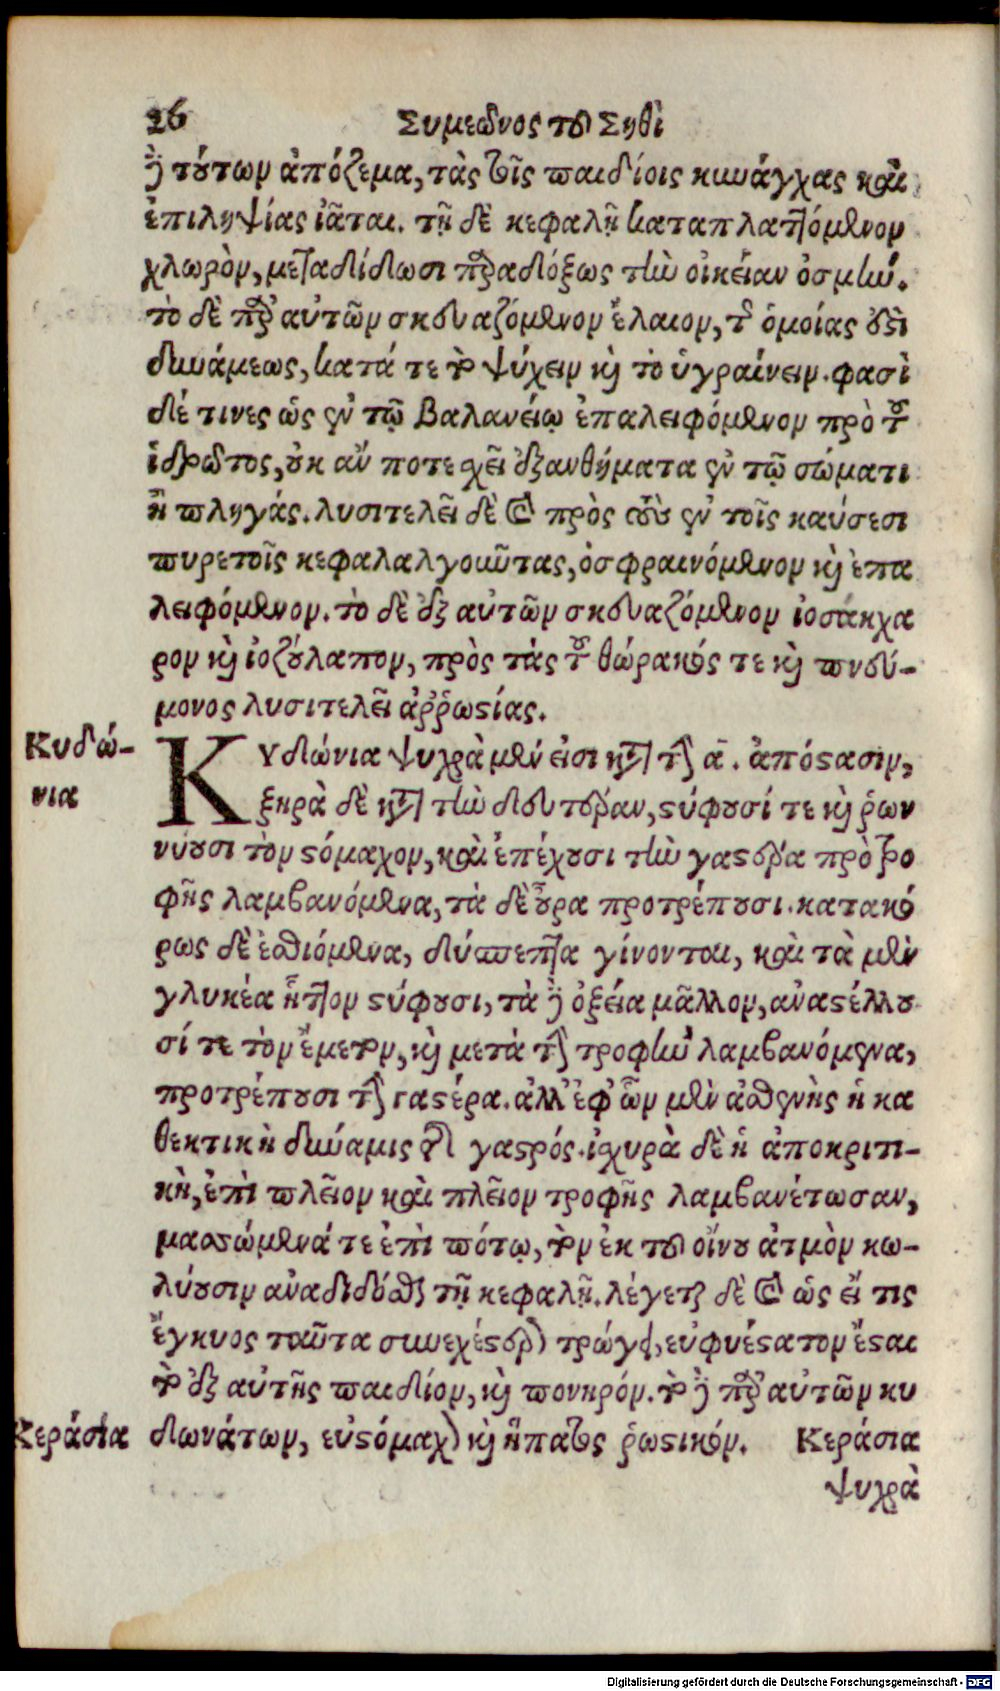 26 Συμεῶνος τοῦ Σηθὶ
δὲ τούτων ἀπόζεμα, τὰς τοῖς παιδίοις κυνάγχας καὶ
ἐπιληψίας ἰᾶται. τῇ δὲ κεφαλῇ καταπλαττόμενον
χλωρὸν, μεταδίδωσι παραδόξως τὴν οἰκείαν ὀσμήν.
τὸ δὲ παρ' αὐτῶν σκευαζόμενον ἔλαιον, τῆς ὁμοίας ἐστὶ
δυνάμεως, κατά τε τὸ ψύχειν καὶ τὸ ὑγραίνειν. φασὶ
δέ τινες ὡς ἐν τῷ βαλανείῳ ἐπαλειφόμενον πρὸ τοῦ
ἱδρῶτος, οὐκ ἄν ποτε σχεῖ ἐξανθήματα ἐν τῷ σώματι
ἢ πληγάς. λυσιτελεῖ δὲ καὶ πρὸς τοὺς ἐν τοῖς καύσεσι
πυρετοῖς κεφαλαλγοῦντας, ὀσφραινόμενον καὶ ἐπα
λειφόμενον. τὸ δὲ ἐξ αὐτῶν σκευαζόμενον ἰοσάκχα
ρον καὶ ἰοζούλαπον, πρὸς τὰς τοῦ θώρακός τε καὶ πνεύ-
μονος λυσιτελεῖ ἀῤῥωστίας.
Κυδώ-
νια
Κυδώνια ψυχρὰ μέν εἰσι κατὰ τὴν ᾱ. ἀπόστασιν,
ξηρὰ δὲ κατὰ τὴν δευτέραν, στύφουσί τε καὶ ῥων
νύουσι τὸν στόμαχον, καὶ ἐπέχουσι τὴν γαστέρα πρὸ τρο
φῆς λαμβανόμενα, τὰ δὲ οὖρα προτρέπουσι. κατακό
ρως δὲ ἐσθιόμενα, δύσπεπτα γίνονται, καὶ τὰ μὲν
γλυκέα ἧττον στύφουσι, τὰ δὲ ὀξεία μᾶλλον, ἀναστέλλου
σί τε τὸν ἔμετον, καὶ μετὰ τὴν τροφὴν λαμβανόμενα,
προτρέπουσι τὴν γαστέρα. ἀλλ' ἐφ' ὧν μὲν ἀσθενὴς ἡ κα
θεκτικὴ δύναμις τῆς γαστρός. ἰσχυρὰ δὲ ἡ ἀποκριτι-
κὴ, ἐπὶ πλεῖον καὶ πλεῖον τροφῆς λαμβανέτωσαν,
μασσώμενά τε ἐπὶ πότῳ, τὸν ἐκ τοῦ οἴνου ἀτμὸν κω-
λύουσιν ἀναδίδοσθαι τῇ κεφαλῇ. λέγεται δὲ καὶ ὡς εἴ τις
ἔγκυος ταῦτα συνεχέστερον τρώγει, εὐφυέστατον ἔσται
τὸ ἐξ αὐτῆς παιδίον, καὶ πονηρόν. τὸ δὲ παρ' αὐτῶν κυ
Κεράσια
δωνάτων, εὐστόμαχον καὶ ἥπατος ῥωστικόν. Κεράσια
ψυχρὰ
Digitalisierung gefördert durch die Deutsche Forschungsgemeinschaft - DFG